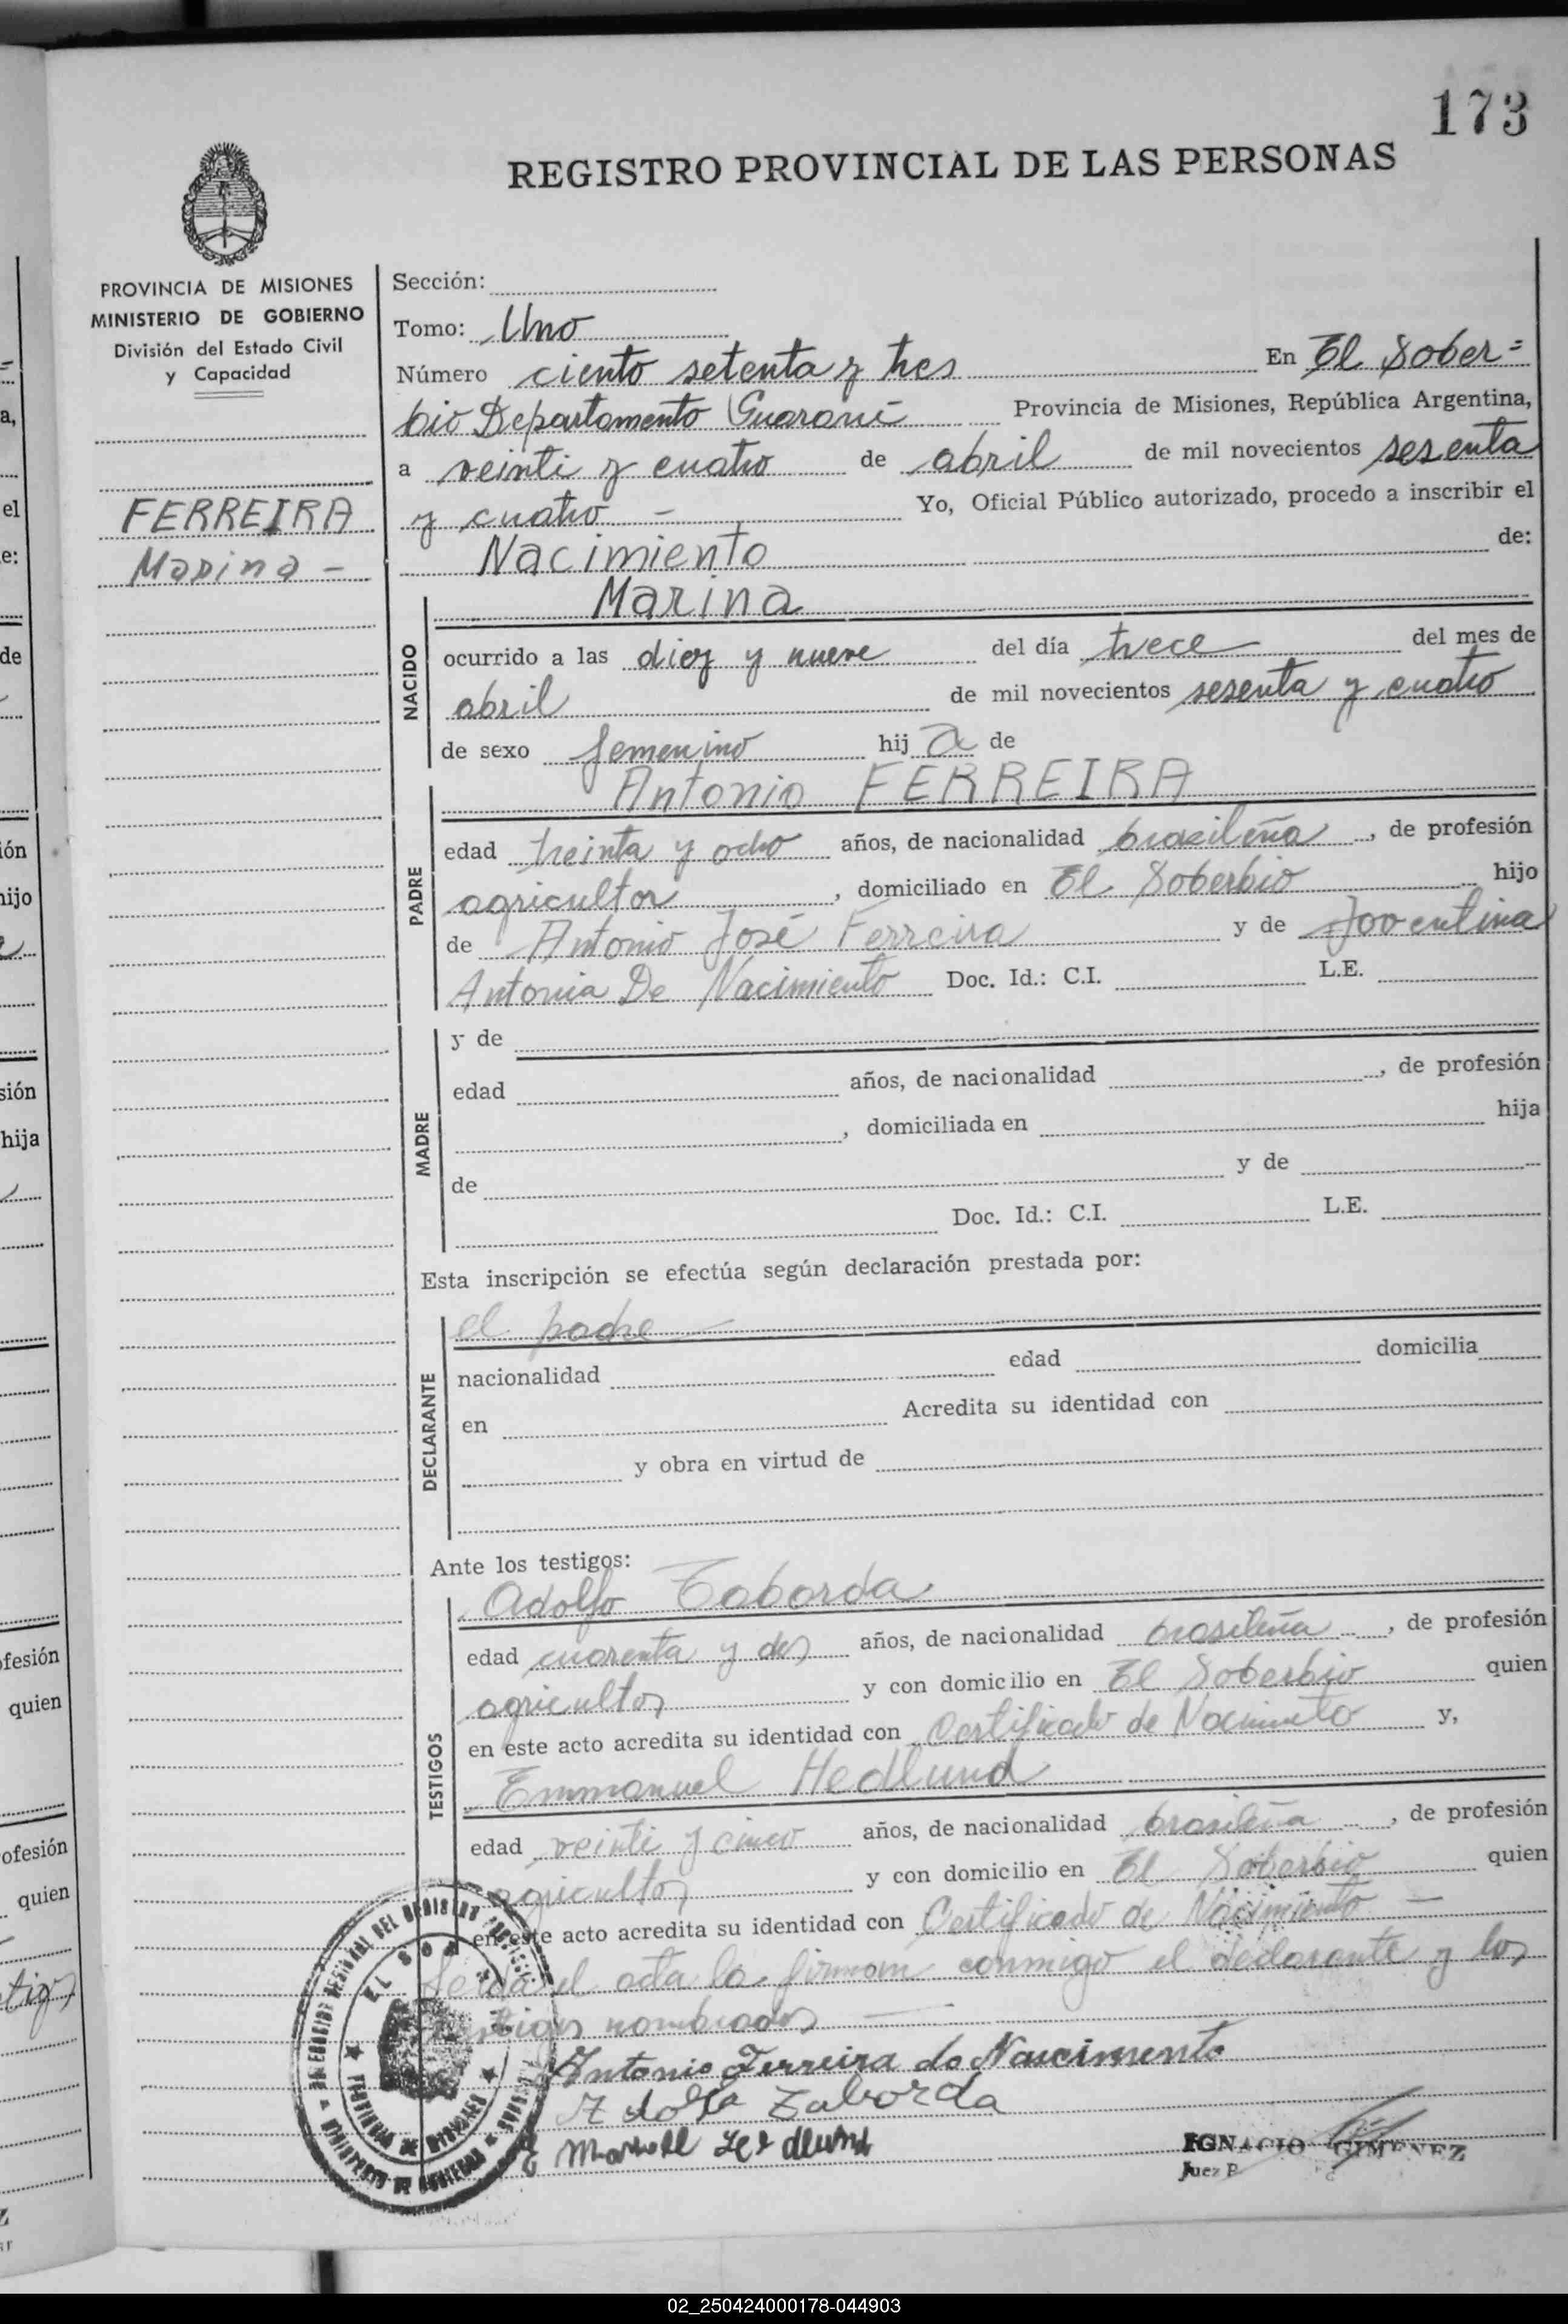 173
REGISTRO PROVINCIAL DE LAS PERSONAS
PROVINCIA DE MISIONES
MINISTERIO DE GOBIERNO
División del Estado Civil
y Capacidad
FERREIRA
Marina -
Sección:
Tomo: Uno
Número ciento setenta y tres En El Sober=
bio Departamento Guaraní Provincia de Misiones, República Argentina,
a veinti y cuatro de abril de mil novecientos sesenta
y cuatro - Yo, Oficial Público autorizado, procedo a inscribir el
Nacimiento de:
Marina
NACIDO
ocurrido a las diez y nueve del día trece del mes de
abril de mil novecientos sesenta y cuatro
de sexo femenino hij a de
Antonio FERREIRA
PADRE
edad treinta y ocho años, de nacionalidad brazileña, de profesión
agricultor, domiciliado en El Soberbio hijo
de Antonio José Ferreira y de Joventina
Antonia De Nacimiento Doc. Id.: C.I. L.E.
MADRE
y de
edad años, de nacionalidad , de profesión
, domiciliada en hija
de y de
Doc. Id.: C.I. L.E.
Esta inscripción se efectúa según declaración prestada por:
DECLARANTE
el padre
nacionalidad edad domicilia
en Acredita su identidad con
y obra en virtud de
Ante los testigos:
TESTIGOS
Adolfo Taborda
edad cuarenta y dos años, de nacionalidad brasileña, de profesión
agricultor y con domicilio en El Soberbio quien
en este acto acredita su identidad con Certificado de Nacimiento y,
Emmanuel Hedlund
edad veinti y cinco años, de nacionalidad brasileña, de profesión
agricultor y con domicilio en El Soberbio quien
en este acto acredita su identidad con Certificado de Nacimiento -
Leida el acta la firman conmigo el declarante y los
testigos nombrados
Antonio Ferreira do Nascimento
Adolfo Taborda
IGNACIO GIMENEZ
Juez P
02_250424000178-044903